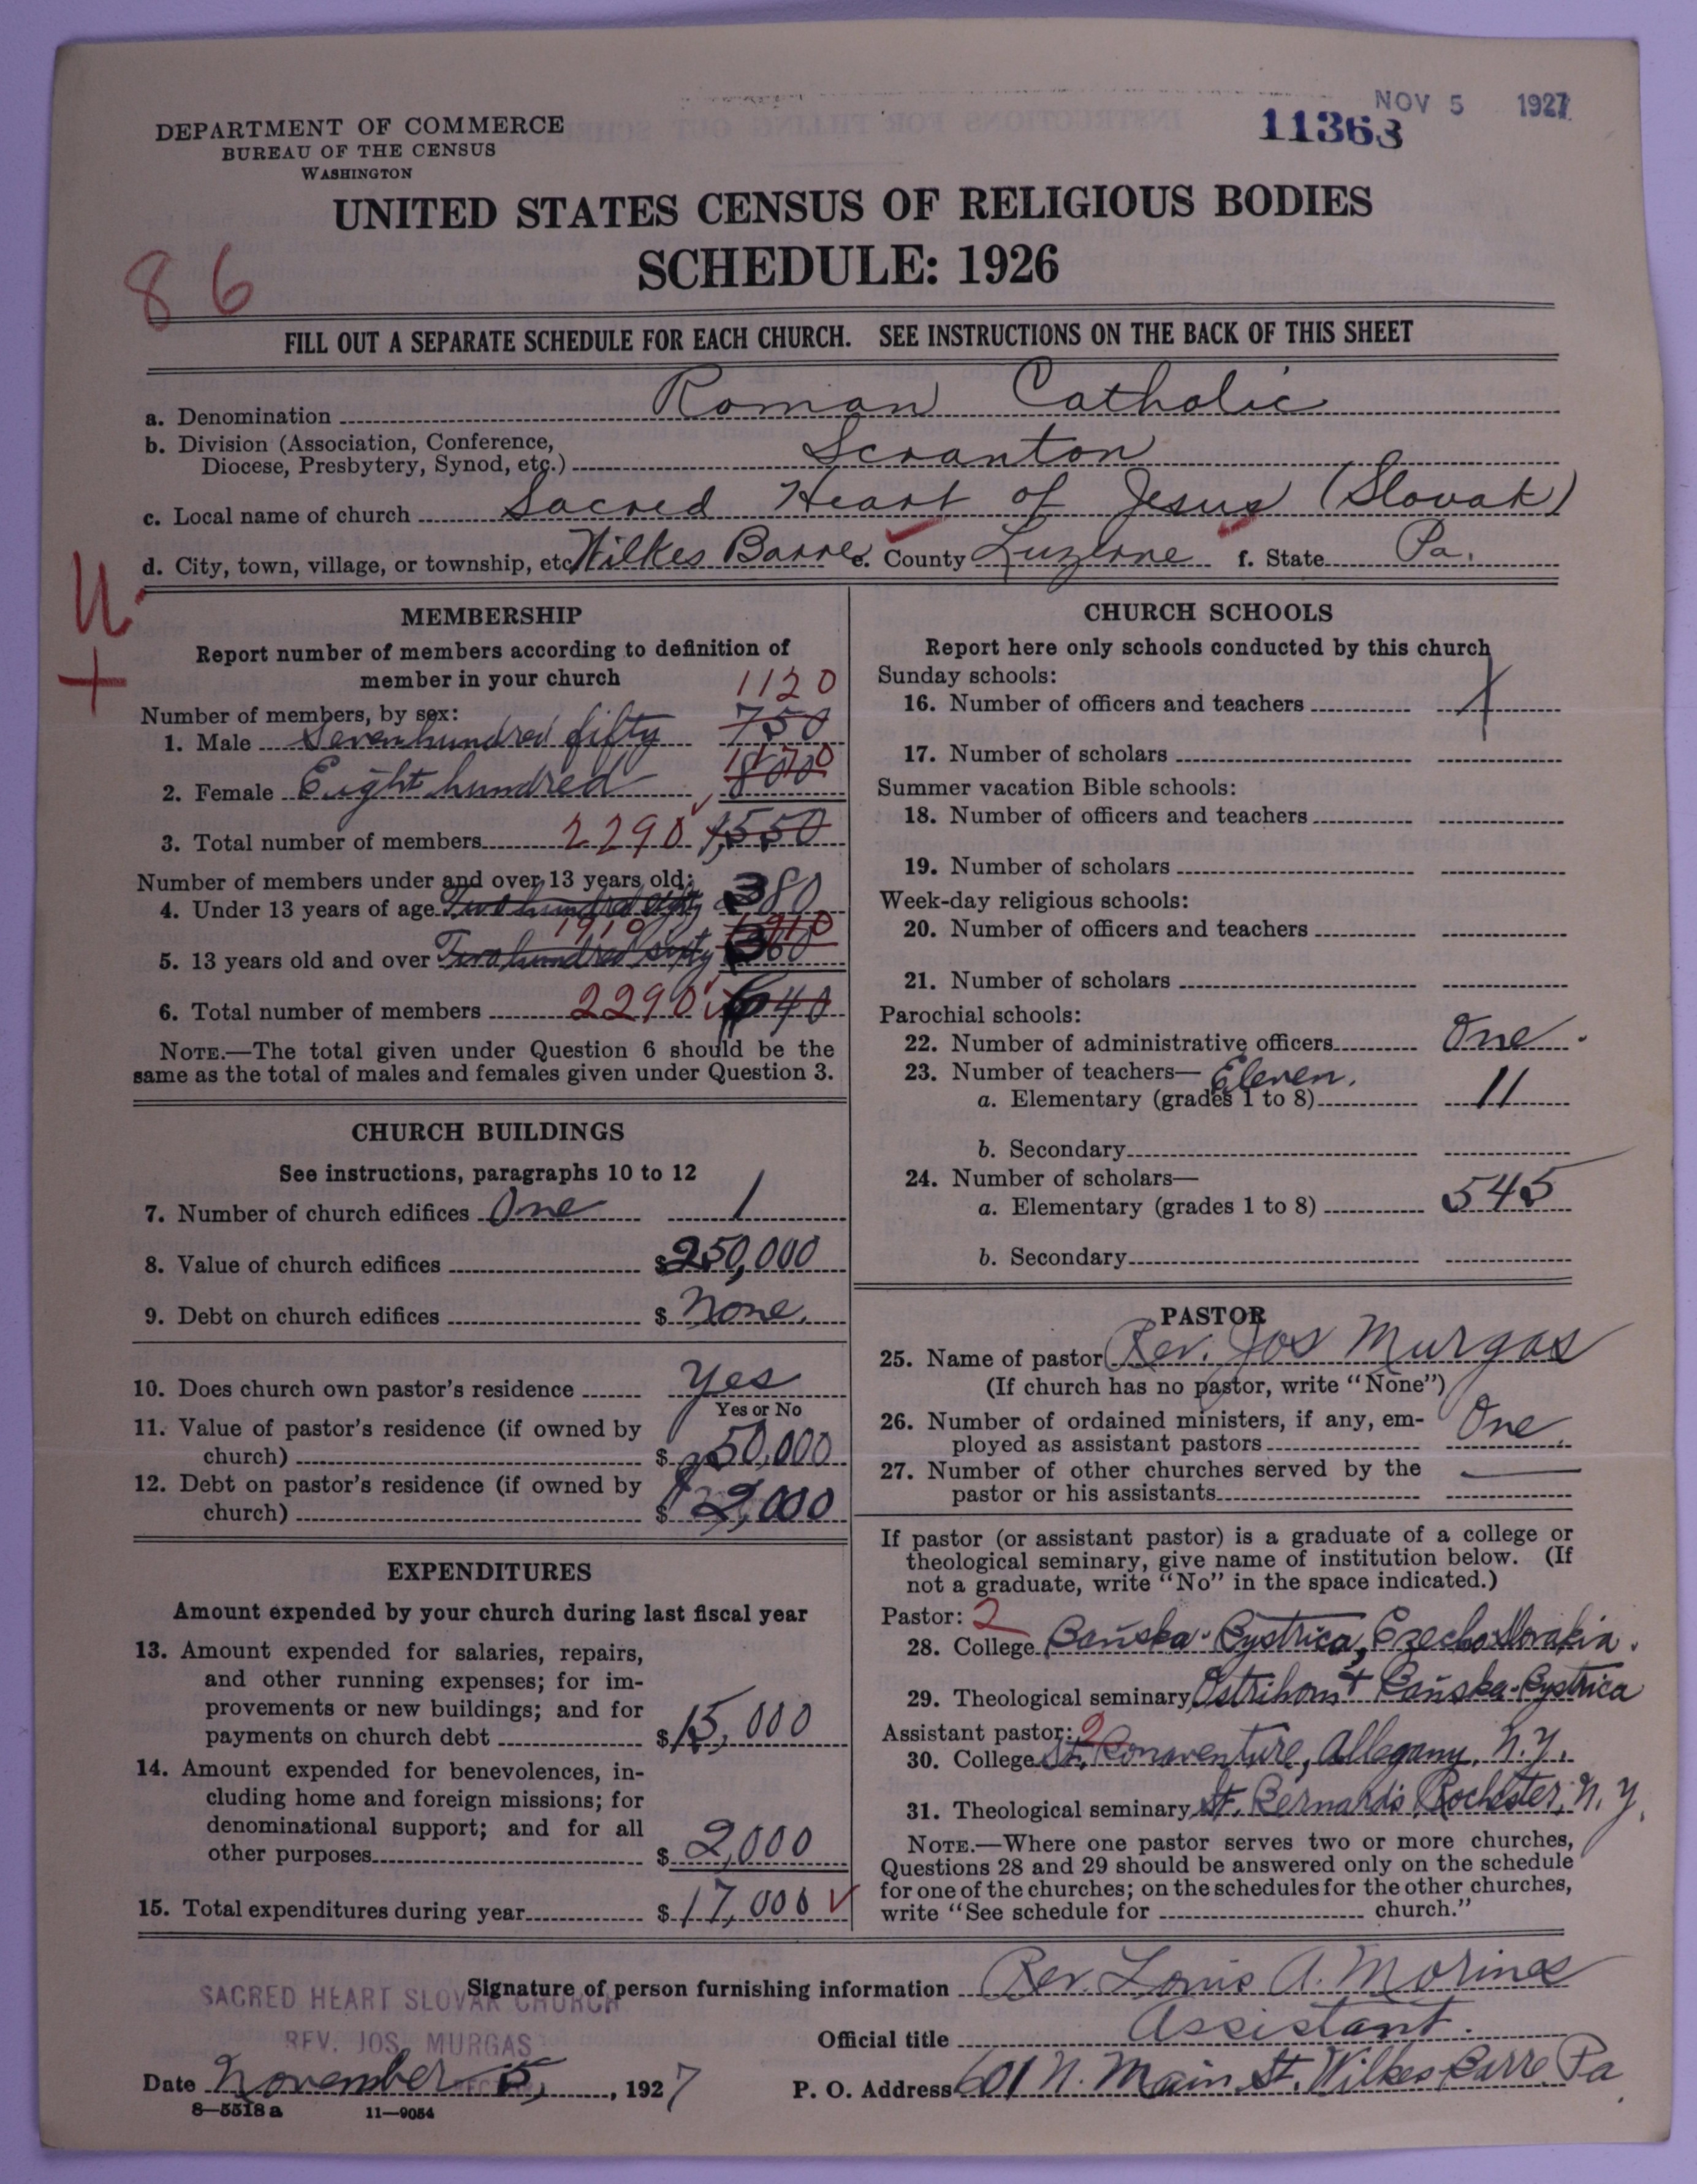 NOV 5 1927
11363
DEPARTMENT OF COMMERCE
BUREAU OF THE CENSUS
WASHINGTON
UNITED STATES CENSUS OF RELIGIOUS BODIES
SCHEDULE: 1926
86
FILL OUT A SEPARATE SCHEDULE FOR EACH CHURCH. SEE INSTRUCTIONS ON THE BACK OF THIS SHEET
a. Denomination Roman Catholic
b. Division (Association, Conference,
Diocese, Presbytery, Synod, etc.) Scranton
c. Local name of church Sacred Heart of Jesus (Slovak)
d. City, town, village, or township, etc. Wilkes Barre e. County Luzerne f. State Pa.
MEMBERSHIP
Report number of members according to definition of
member in your church
1120
Number of members, by sex:
1. Male Seven hundred fifty 750
1170
2. Female Eight hundred 800
3. Total number of members 2290 1,550
Number of members under and over 13 years old:
4. Under 13 years of age Two hundred eighty 380
1910 1910
5. 13 years old and over Two hundred sixty 360
6. Total number of members 2290 640
NOTE.—The total given under Question 6 should be the
same as the total of males and females given under Question 3.
CHURCH BUILDINGS
See instructions, paragraphs 10 to 12
7. Number of church edifices One 1
8. Value of church edifices $250,000
9. Debt on church edifices $ None.
10. Does church own pastor's residence Yes
Yes or No
11. Value of pastor's residence (if owned by
church) $ 50,000
12. Debt on pastor's residence (if owned by
church) $ 2,000
EXPENDITURES
Amount expended by your church during last fiscal year
13. Amount expended for salaries, repairs,
and other running expenses; for im-
provements or new buildings; and for
payments on church debt $15,000
14. Amount expended for benevolences, in-
cluding home and foreign missions; for
denominational support; and for all
other purposes $ 2,000
15. Total expenditures during year $ 17,000
CHURCH SCHOOLS
Report here only schools conducted by this church
Sunday schools:
16. Number of officers and teachers
17. Number of scholars
Summer vacation Bible schools:
18. Number of officers and teachers
19. Number of scholars
Week-day religious schools:
20. Number of officers and teachers
21. Number of scholars
Parochial schools:
22. Number of administrative officers One.
23. Number of teachers— Eleven.
a. Elementary (grades 1 to 8) 11
b. Secondary
24. Number of scholars—
a. Elementary (grades 1 to 8) 545
b. Secondary
PASTOR
25. Name of pastor Rev. Jos Murgas
(If church has no pastor, write "None")
26. Number of ordained ministers, if any, em-
ployed as assistant pastors One
27. Number of other churches served by the
pastor or his assistants
If pastor (or assistant pastor) is a graduate of a college or
theological seminary, give name of institution below. (If
not a graduate, write "No" in the space indicated.)
Pastor: 2
28. College Bańska-Bystrica, Czechoslovakia.
29. Theological seminary Ostrihom + Bańska-Bystrica
Assistant pastor: 2
30. College St. Bonaventure, Allegany, N.Y.
31. Theological seminary St. Bernard's Rochester, N.Y.
NOTE.—Where one pastor serves two or more churches,
Questions 28 and 29 should be answered only on the schedule
for one of the churches; on the schedules for the other churches,
write "See schedule for church."
SACRED HEART SLOVAK CHURCH
REV. JOS. MURGAS
Signature of person furnishing information Rev. Louis A. Morinas
Official title Assistant.
Date November 5, 1927 P. O. Address 601 N. Main St. Wilkes Barre Pa.
8—5518 a 11—9054